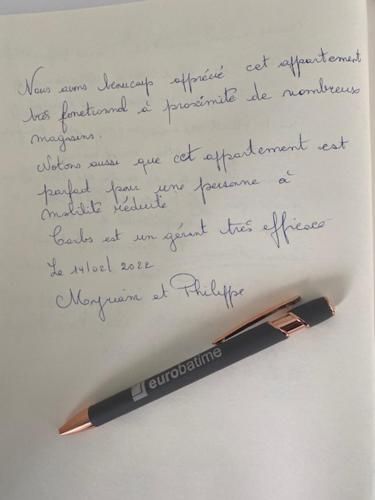 Nous avons beaucoup apprécié cet appartement
très fonctionnel à proximité de nombreux
magasins.
Notons aussi que cet appartement est
parfait pour une personne à
mobilité réduite
Carlos est un gérant très efficace
Le 14/02/2022
Myriam et Philippe
eurobatime